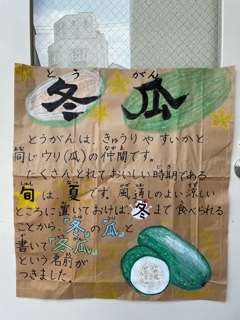 とうがん
冬瓜
とうがんは、きゅうりやすいかと
同じウリ(瓜)の仲間です。
たくさんとれておいしい時期である
旬は、夏です。風通しのよい涼しい
ところに置いておけば、冬まで食べられる
ことから、"冬の瓜"と
書いて"冬瓜"
という名前が
つきました。